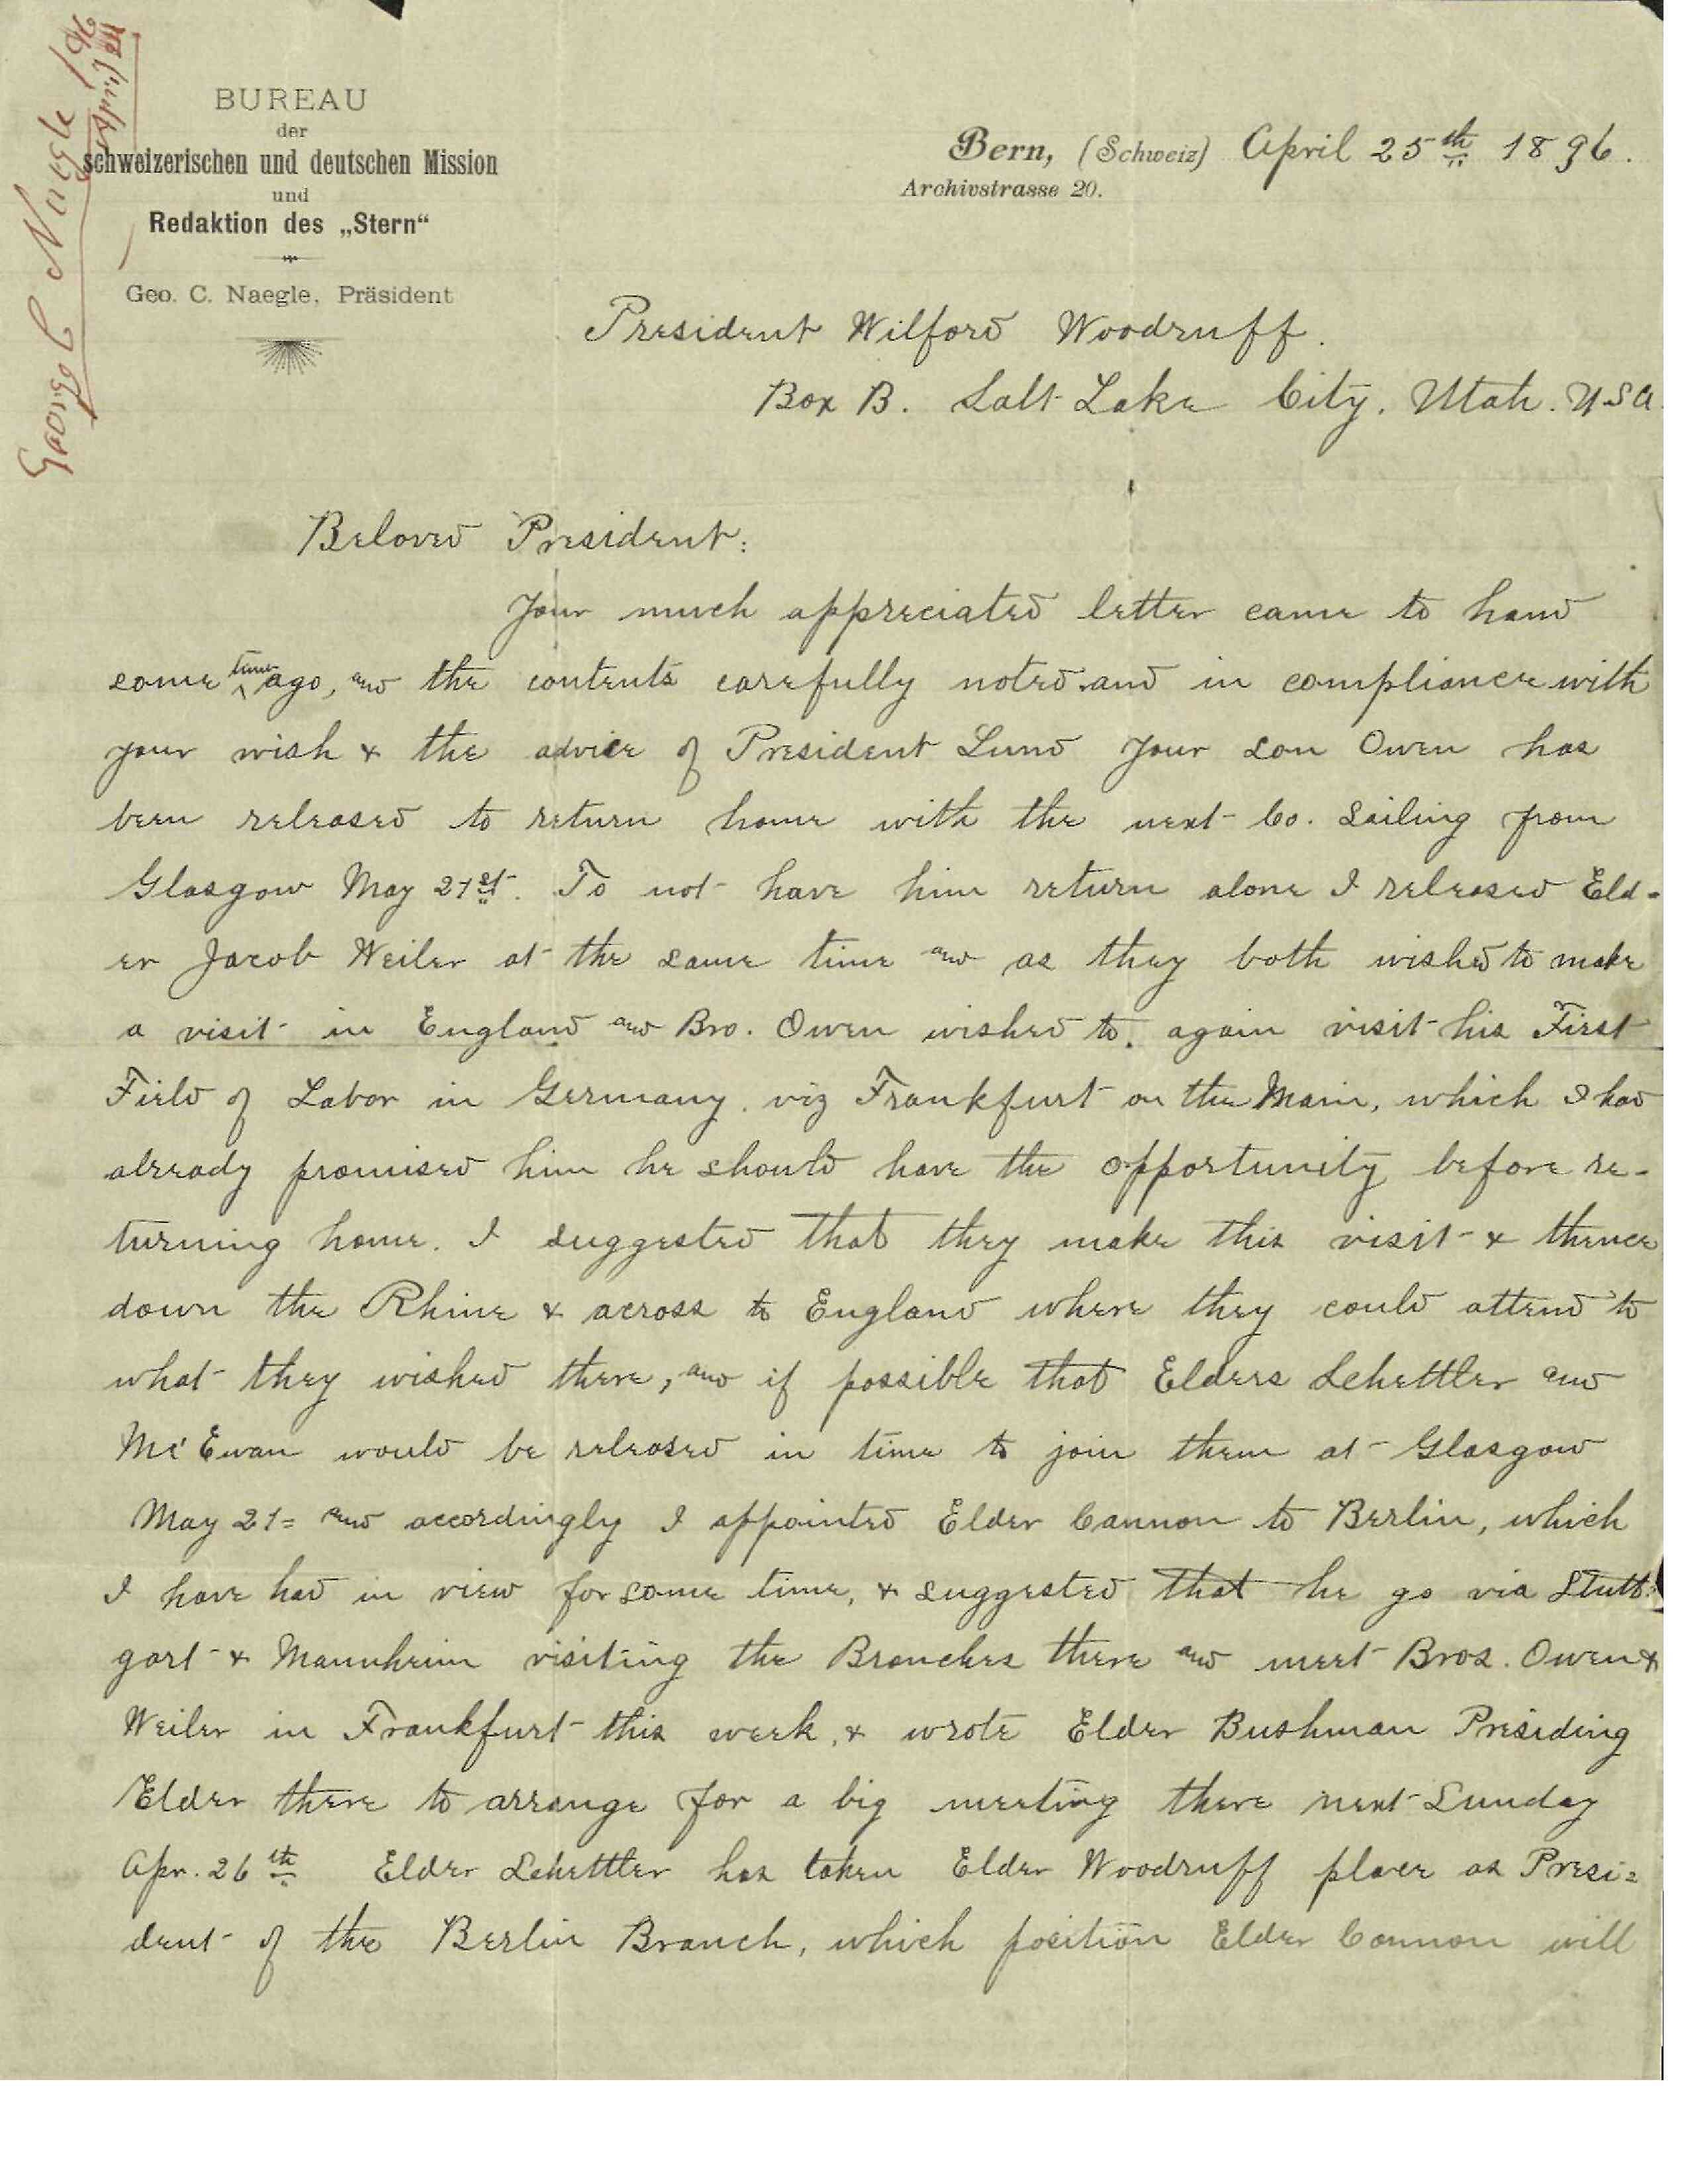 George C Naegle
April 24 /96
BUREAU
der
schweizerischen und deutschen Mission
und
Redaktion des „Stern“
Geo. C. Naegle, Präsident
Bern, (Schweiz) April 25th 1896.
Archivstrasse 20.
President Wilford Woodruff.
Box B. Salt Lake City. Utah. USA
Beloved President:
Your much appreciated letter came to hand
some time ago, and the contents carefully noted and in compliance with
your wish & the advice of President Lund your son Owen has
been released to return home with the next Co. sailing from
Glasgow May 21st. To not have him return alone I released Eld-
er Jacob Weiler at the same time and as they both wished to make
a visit in England and Bro. Owen wished to again visit his First
Field of Labor in Germany. viz Frankfurt on the Main, which I had
already promised him he should have the opportunity before re-
turning home. I suggested that they make this visit & thence
down the Rhine & across to England where they could attend to
what they wished there, and if possible that Elders Schettler and
Mc Ewan would be released in time to join them at Glasgow
May 21= and accordingly I appointed Elder Cannon to Berlin, which
I have had in view for some time, & suggested that he go via Stutt-
gart & Mannheim visiting the Branches there and meet Bros. Owen &
Weiler in Frankfurt this week, & wrote Elder Bushman Presiding
Elder there to arrange for a big meeting there next Sunday
Apr. 26th Elder Schettler has taken Elder Woodruff place as Presi=
dent of the Berlin Branch, which position Elder Cannon will